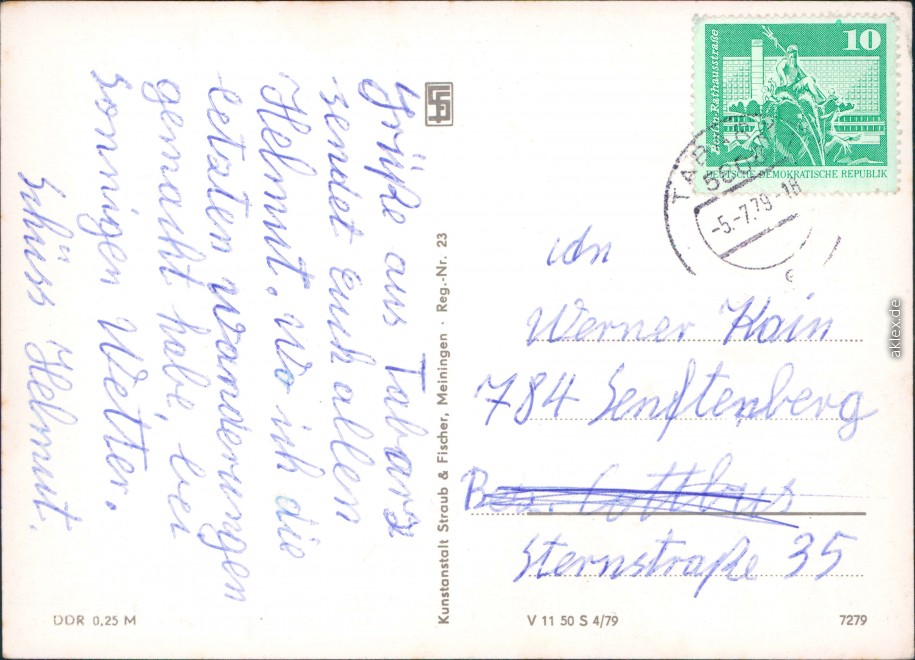 Grüße aus Tabarz
sendet Euch allen
Helmut. Wo ich die
letzten Wanderungen
gemacht habe, bei
sonnigen Wetter.
Schüss Helmut.
Kunstanstalt Straub & Fischer, Meiningen · Reg.-Nr. 23
10
Berlin-Rathausstraße
DEUTSCHE DEMOKRATISCHE REPUBLIK
-5.-7.79-18
e
Werner Kain
784 Senftenberg
Bez. Cottbus
Sternstraße 35
DDR 0,25 M
V 11 50 S 4/79
7279
aklex.de